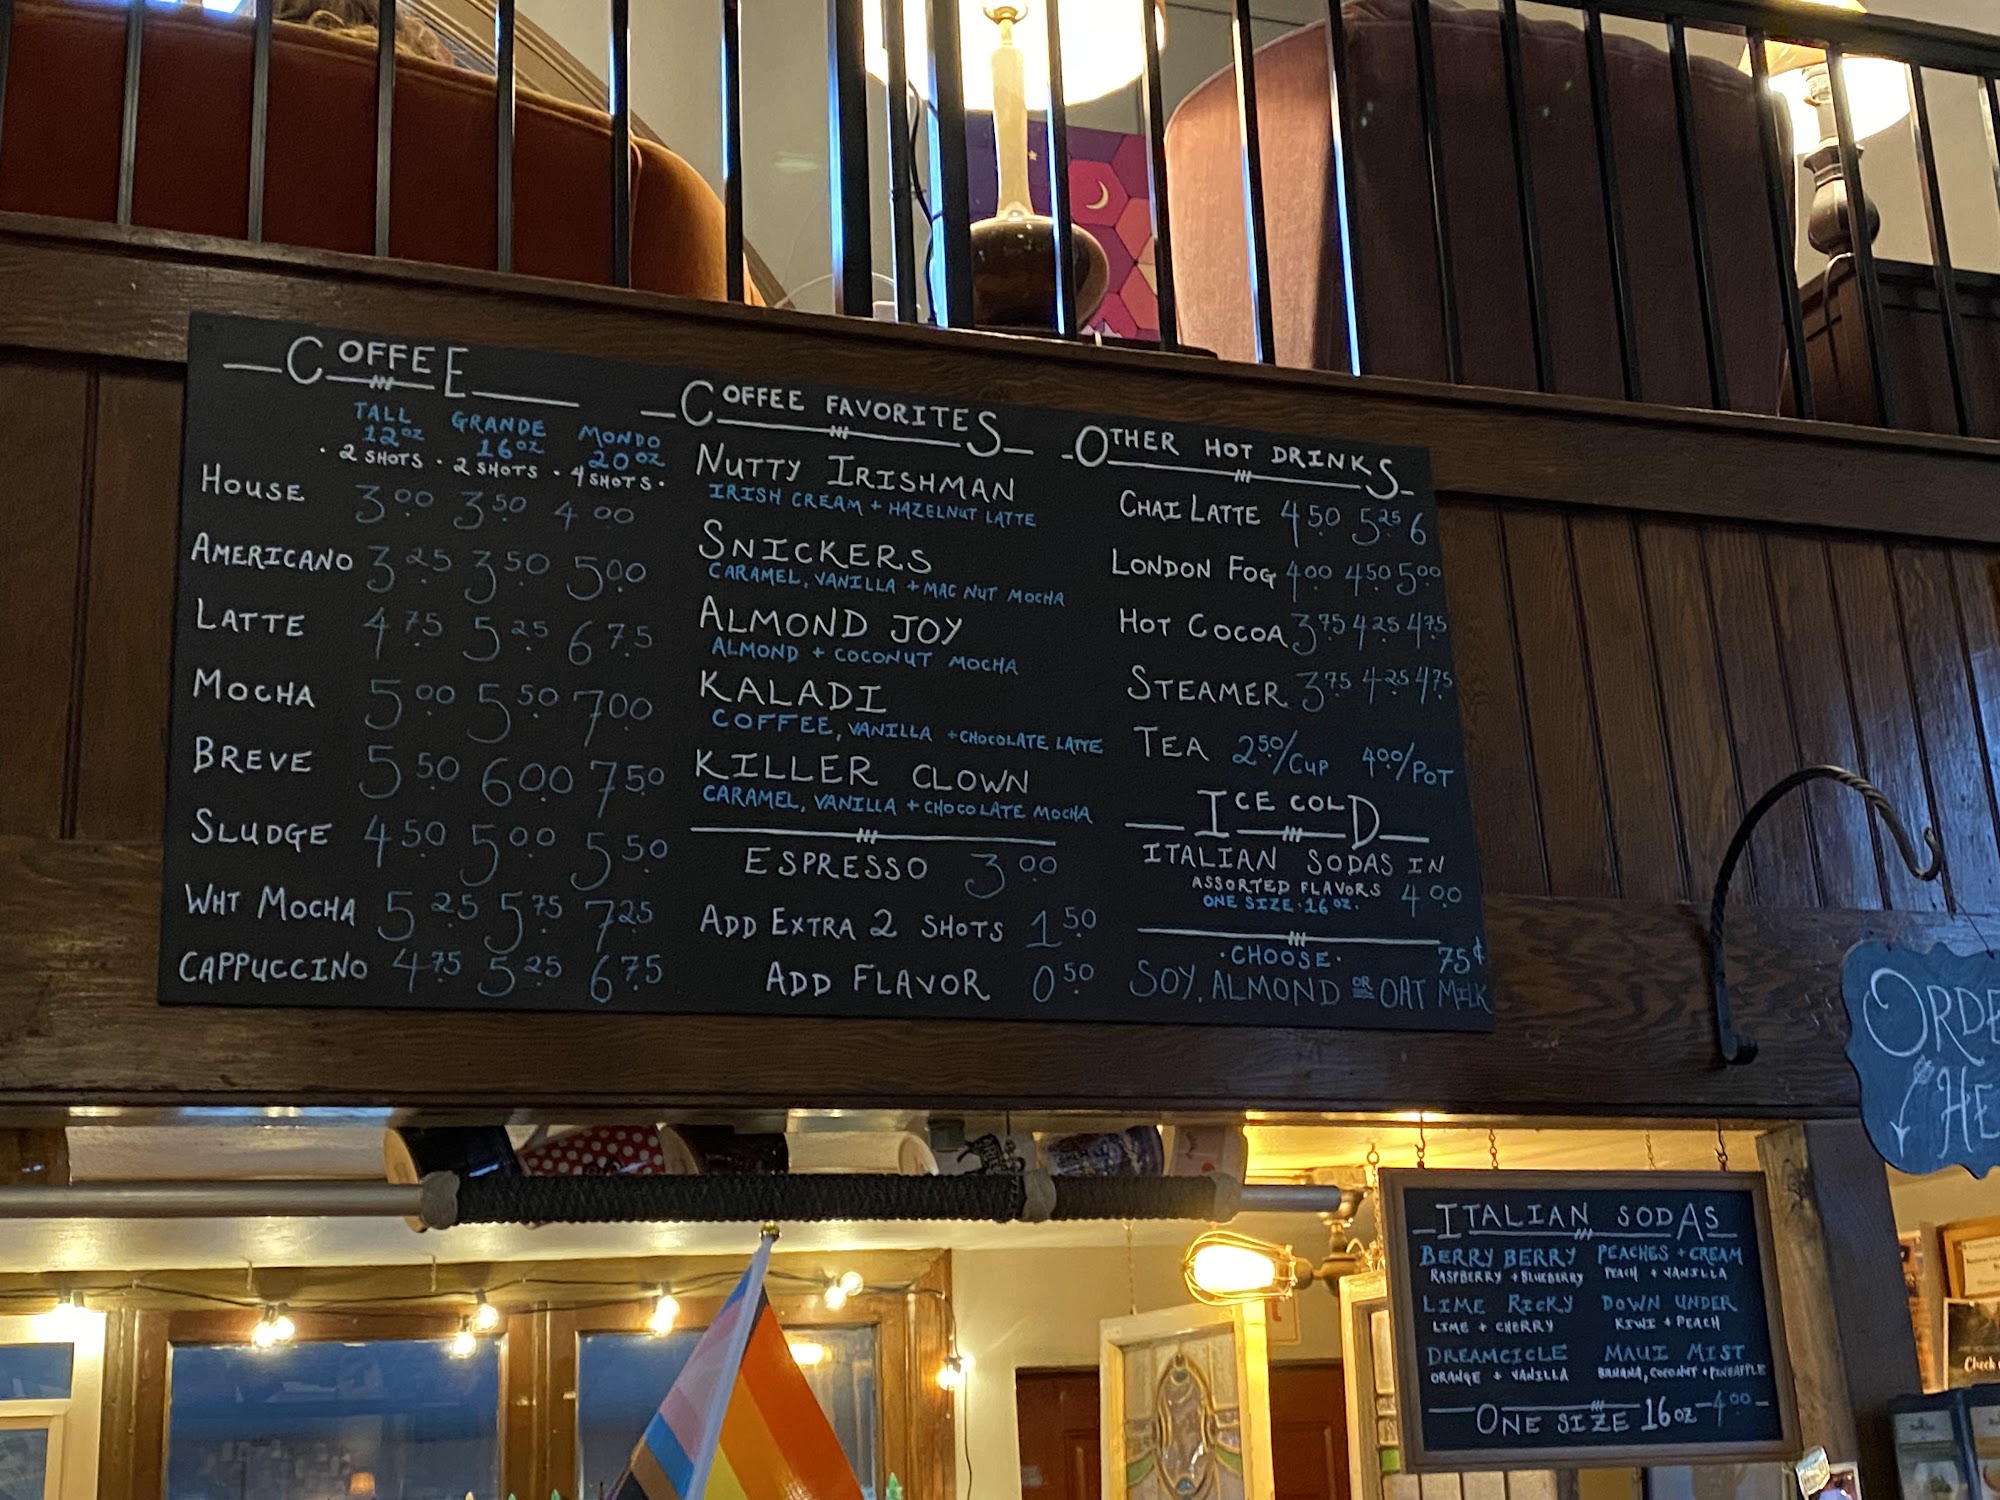 COFFEE
TALL GRANDE MONDO
12oz 16oz 20oz
· 2 SHOTS · 2 SHOTS · 4 SHOTS ·
HOUSE 3.00 3.50 4.00
AMERICANO 3.25 3.50 5.00
LATTE 4.75 5.25 6.75
MOCHA 5.00 5.50 7.00
BREVE 5.50 6.00 7.50
SLUDGE 4.50 5.00 5.50
WHT MOCHA 5.25 5.75 7.25
CAPPUCCINO 4.75 5.25 6.75
COFFEE FAVORITES
NUTTY IRISHMAN
IRISH CREAM + HAZELNUT LATTE
SNICKERS
CARAMEL, VANILLA + MAC NUT MOCHA
ALMOND JOY
ALMOND + COCONUT MOCHA
KALADI
COFFEE, VANILLA + CHOCOLATE LATTE
KILLER CLOWN
CARAMEL, VANILLA + CHOCOLATE MOCHA
ESPRESSO 3.00
ADD EXTRA 2 SHOTS 1.50
ADD FLAVOR 0.50
OTHER HOT DRINKS
CHAI LATTE 4.50 5.25 6
LONDON FOG 4.00 4.50 5.00
HOT COCOA 3.75 4.25 4.75
STEAMER 3.75 4.25 4.75
TEA 2.50/CUP 4.00/POT
ICE COLD
ITALIAN SODAS IN
ASSORTED FLAVORS 4.00
ONE SIZE · 16 oz.
· CHOOSE · 75¢
SOY, ALMOND OR OAT MILK
ORDE
HE
ITALIAN SODAS
BERRY BERRY PEACHES + CREAM
RASPBERRY + BLUEBERRY PEACH + VANILLA
LIME RICKY DOWN UNDER
LIME + CHERRY KIWI + PEACH
DREAMCICLE MAUI MIST
ORANGE + VANILLA BANANA, COCONUT + PINEAPPLE
ONE SIZE 16 oz 4.00
Check